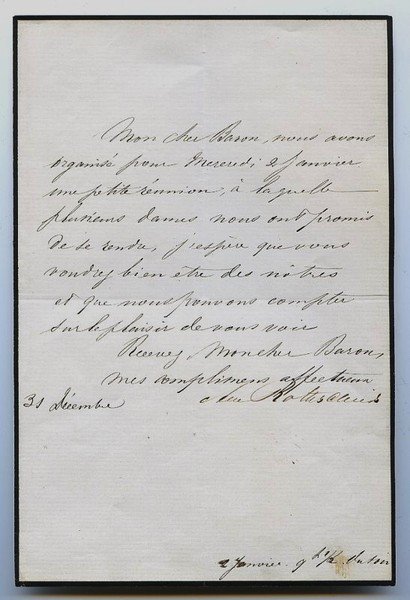 Mon cher Baron, nous avons
organisé pour Mercredi 2 Janvier
une petite réunion, à laquelle
plusieurs dames nous ont promis
de se rendre, j'espère que vous
voudrez bien être des nôtres
et que nous pouvons compter
sur le plaisir de vous voir
Recevez, Mon cher Baron,
mes complimens affectueux
31 Décembre
de Rothschild
2 Janvier 9 h 1/2 du soir